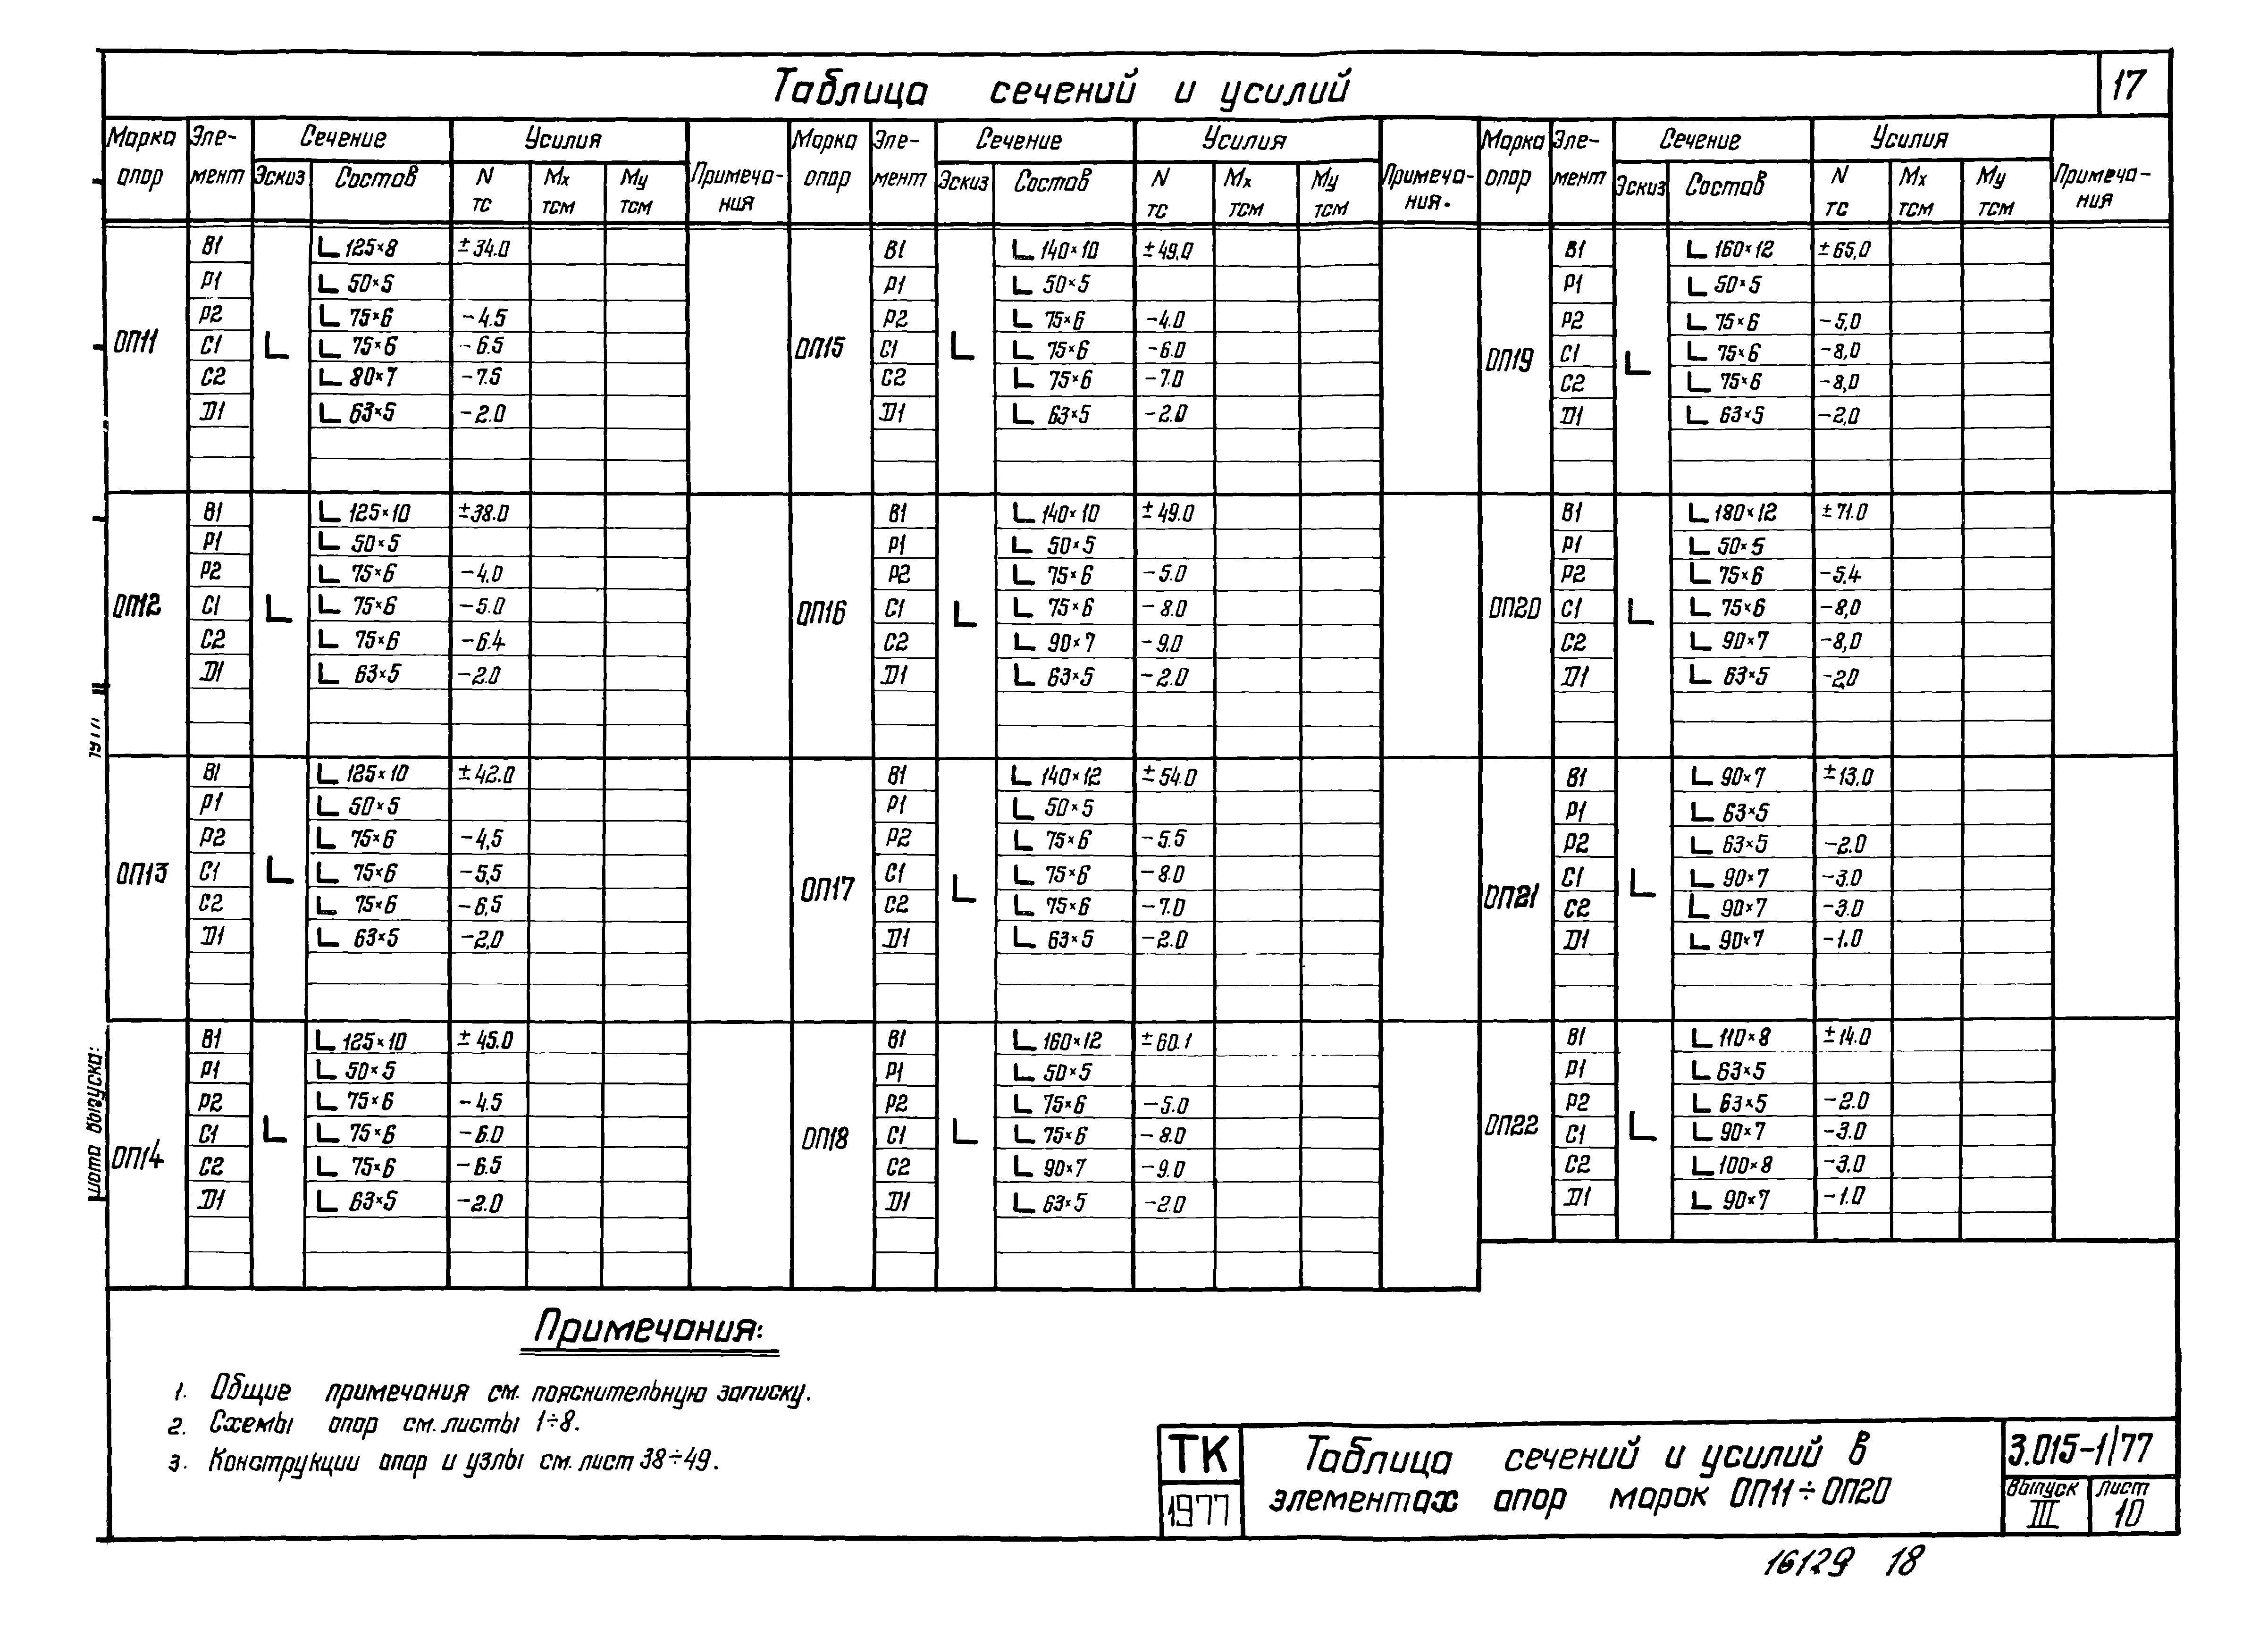 Таблица сечений и усилий
17
Марка опор Эле-мент Сечение Усилия Примеча-ния Марка опор Эле-мент Сечение Усилия Примеча-ния. Марка опор Эле-мент Сечение Усилия Примеча-ния
Эскиз Состав N тс Mx тсм My тсм Эскиз Состав N тс Mx тсм My тсм Эскиз Состав N тс Mx тсм My тсм
ОП11
В1 L 125×8 ±34.0
Р1 L 50×5
Р2 L 75×6 -4.5
С1 L 75×6 -6.5
С2 L 80×7 -7.5
D1 L 63×5 -2.0
ОП12
В1 L 125×10 ±38.0
Р1 L 50×5
Р2 L 75×6 -4,0
С1 L 75×6 -5.0
С2 L 75×6 -6.4
D1 L 63×5 -2.0
ОП13
В1 L 125×10 ±42.0
Р1 L 50×5
Р2 L 75×6 -4,5
С1 L 75×6 -5,5
С2 L 75×6 -6,5
D1 L 63×5 -2,0
ОП14
В1 L 125×10 ±45.0
Р1 L 50×5
Р2 L 75×6 -4.5
С1 L 75×6 -6.0
С2 L 75×6 -6.5
D1 L 63×5 -2.0
ОП15
В1 L 140×10 ±49,0
Р1 L 50×5
Р2 L 75×6 -4.0
С1 L 75×6 -6.0
С2 L 75×6 -7.0
D1 L 63×5 -2.0
ОП16
В1 L 140×10 ±49.0
Р1 L 50×5
Р2 L 75×6 -5.0
С1 L 75×6 -8.0
С2 L 90×7 -9.0
D1 L 63×5 -2.0
ОП17
В1 L 140×12 ±54.0
Р1 L 50×5
Р2 L 75×6 -5.5
С1 L 75×6 -8.0
С2 L 75×6 -7.0
D1 L 63×5 -2.0
ОП18
В1 L 160×12 ±60.1
Р1 L 50×5
Р2 L 75×6 -5.0
С1 L 75×6 -8.0
С2 L 90×7 -9.0
D1 L 63×5 -2.0
ОП19
В1 L 160×12 ±65,0
Р1 L 50×5
Р2 L 75×6 -5,0
С1 L 75×6 -8,0
С2 L 75×6 -8,0
D1 L 63×5 -2,0
ОП20
В1 L 180×12 ±71.0
Р1 L 50×5
Р2 L 75×6 -5,4
С1 L 75×6 -8,0
С2 L 90×7 -8,0
D1 L 63×5 -2,0
ОП21
В1 L 90×7 ±13.0
Р1 L 63×5
Р2 L 63×5 -2.0
С1 L 90×7 -3.0
С2 L 90×7 -3.0
D1 L 90×7 -1.0
ОП22
В1 L 110×8 ±14.0
Р1 L 63×5
Р2 L 63×5 -2.0
С1 L 90×7 -3.0
С2 L 100×8 -3.0
D1 L 90×7 -1.0
Примечания:
1. Общие примечания см. пояснительную записку.
2. Схемы опор см. листы 1÷8.
3. Конструкции опор и узлы см. лист 38÷49.
ТК
1977
Таблица сечений и усилий в
элементах опор марок ОП11÷ОП20
3.015-1/77
Выпуск III
Лист 10
16129 18
выпуска: